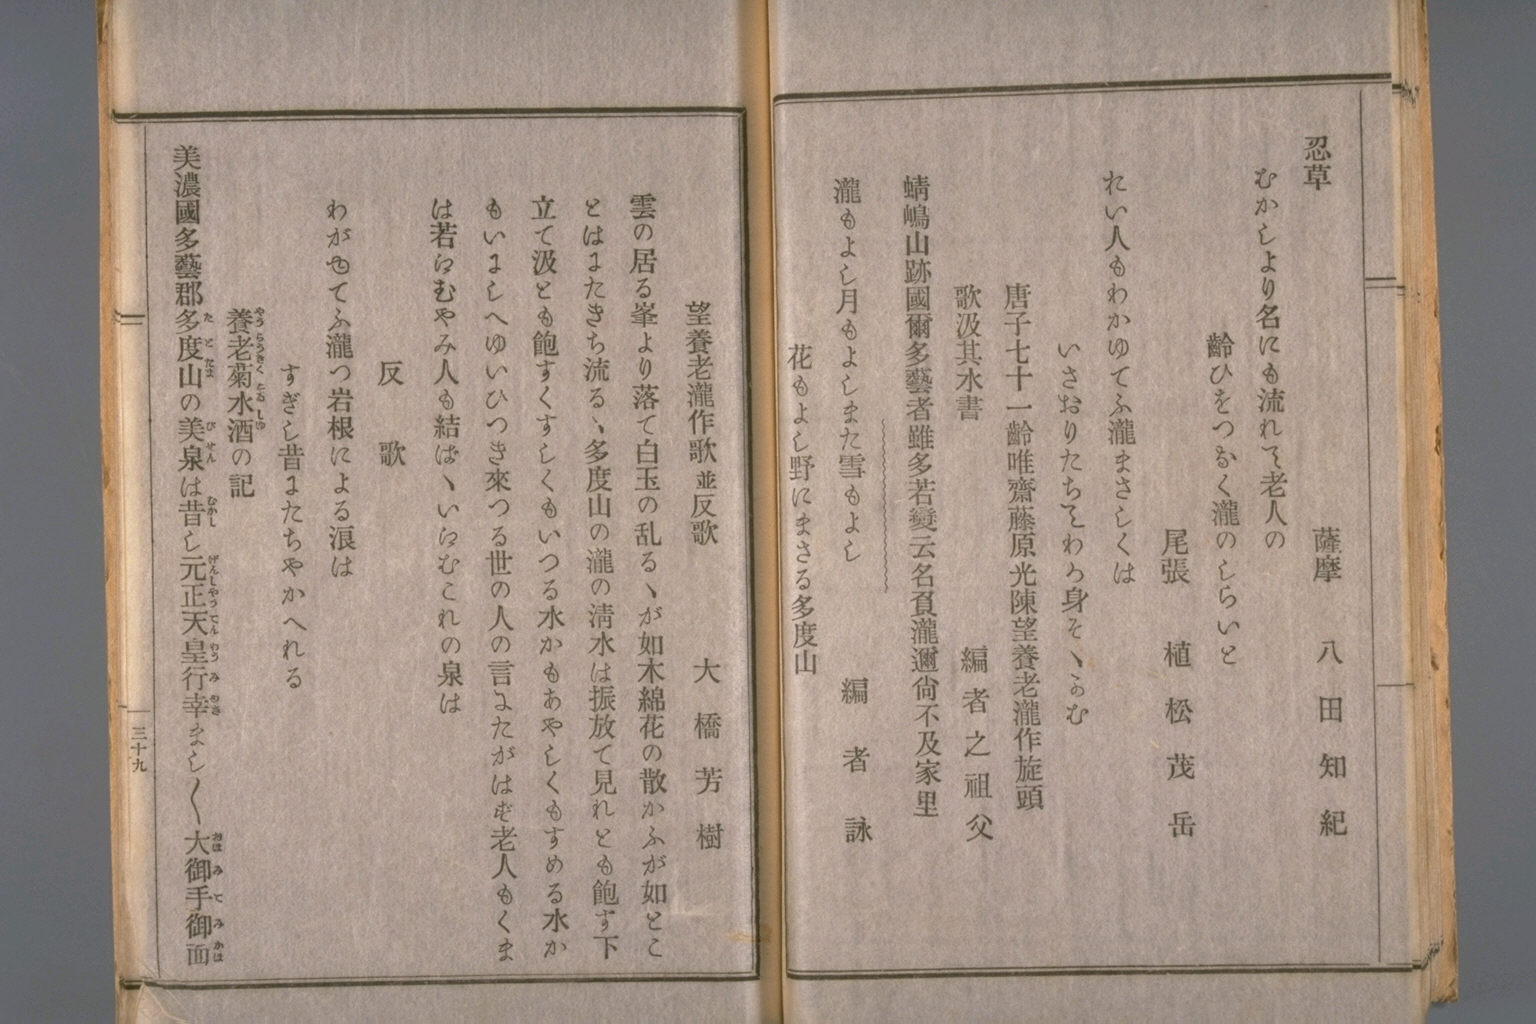 忍草
薩摩 八田知紀
むかしより名にも流れて老人の
齢ひをつなく瀧のしらいと
尾張 植松茂岳
れい人もわかゆてふ瀧まさしくは
いさおりたちてわか身そゝかむ
唐子七十一齢唯齋藤原光陳望養老瀧作旋頭
歌汲其水書 編者之祖父
蜻嶋山跡國爾多藝者雖多若變云名負瀧邇尙不及家里
瀧もよし月もよしまた雪もよし
編者詠
花もよし野にまさる多度山
望養老瀧作歌並反歌 大橋芳樹
雲の居る峯より落て白玉の乱るゝが如木綿花の散かふが如とこ
とはにたきち流るゝ多度山の瀧の淸水は振放て見れとも飽す下
立て汲とも飽すくすしくもいつる水かもあやしくもすめる水か
もいにしへゆいひつき來つる世の人の言にたがはず老人もくま
は若けむやみ人も結ばゝいけむこれの泉は
反歌
わがゆてふ瀧つ岩根による浪は
すぎし昔にたちやかへれる
養老菊水酒の記
美濃國多藝郡多度山の美泉は昔し元正天皇行幸まし〱大御手御面
三十九